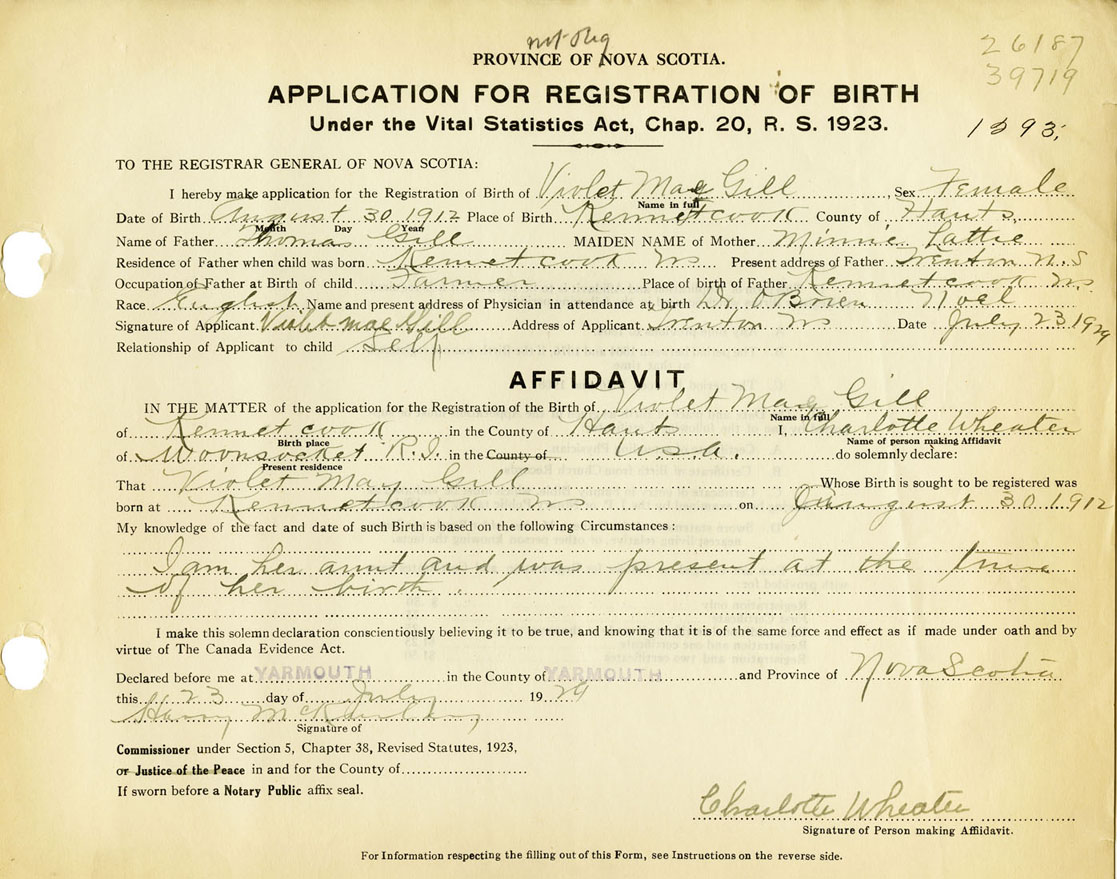 not Reg
26187
PROVINCE OF NOVA SCOTIA.
39719
APPLICATION FOR REGISTRATION OF BIRTH
Under the Vital Statistics Act, Chap. 20, R. S. 1923.
1393
TO THE REGISTRAR GENERAL OF NOVA SCOTIA:
I hereby make application for the Registration of Birth of Violet Mae Gill, Sex Female
Name in full
Date of Birth August 30 1912 Place of Birth Kennetcook County of Hants
Month Day Year
Name of Father Thomas Gill MAIDEN NAME of Mother Minnie Lattie
Residence of Father when child was born Kennetcook Ns Present address of Father Trenton N.S
Occupation of Father at Birth of child Farmer Place of birth of Father Kennetcook Ns
Race English Name and present address of Physician in attendance at birth Dr O'Brien Noel
Signature of Applicant Violet mae Gill Address of Applicant Trenton Ns Date July 23 1929
Relationship of Applicant to child Self
AFFIDAVIT
IN THE MATTER of the application for the Registration of the Birth of Violet May Gill
Name in full
of Kennetcook in the County of Hants I, Charlotte Wheater
Birth place Name of person making Affidavit
of Woonsocket R.I. in the County of U.S.A. do solemnly declare:
Present residence
That Violet May Gill Whose Birth is sought to be registered was
born at Kennetcook Ns on August 30 1912
My knowledge of the fact and date of such Birth is based on the following Circumstances:
I am her aunt and was present at the time
of her birth.
I make this solemn declaration conscientiously believing it to be true, and knowing that it is of the same force and effect as if made under oath and by
virtue of The Canada Evidence Act.
Declared before me at YARMOUTH in the County of YARMOUTH and Province of Nova Scotia
this 23 day of July 1929
Harry
Signature of
Commissioner under Section 5, Chapter 38, Revised Statutes, 1923,
or Justice of the Peace in and for the County of
If sworn before a Notary Public affix seal.
Charlotte Wheater
Signature of Person making Affidavit.
For Information respecting the filling out of this Form, see Instructions on the reverse side.